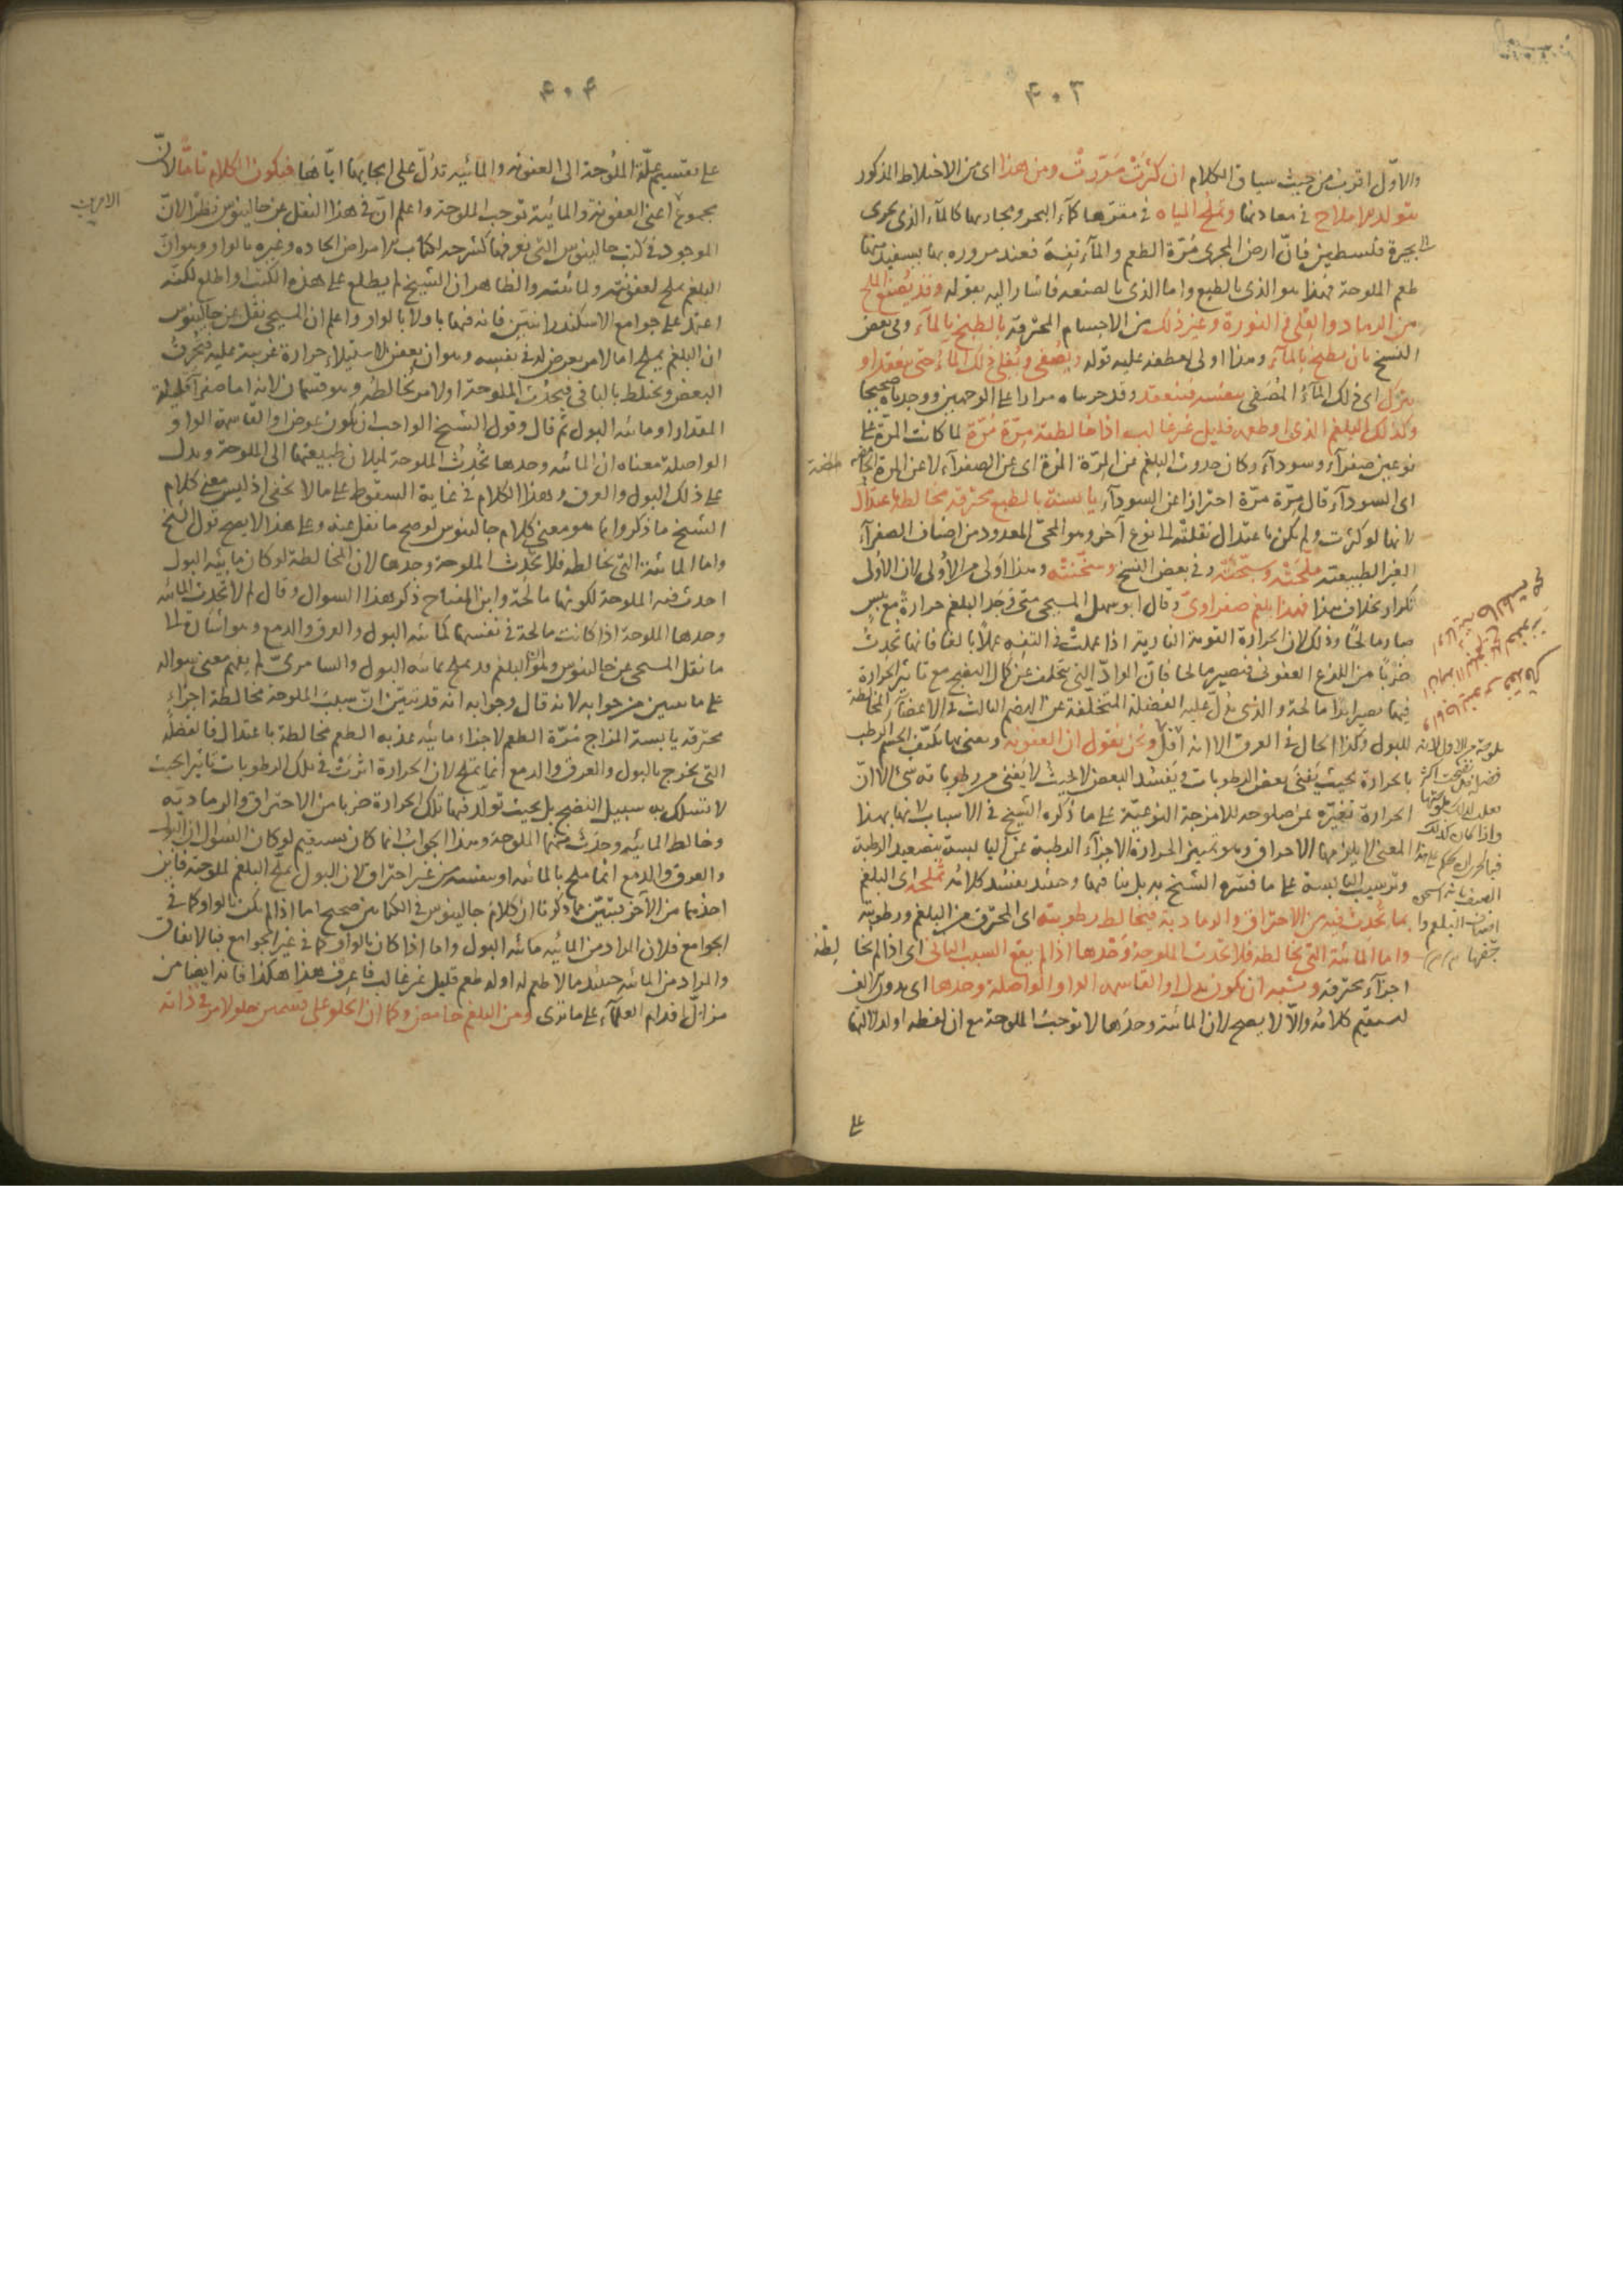 ٤٠٣
والاوّل اقرب من حيث سياق الكلام ان كثرت مرّرت ومن هذا اى من الاختلاط المذكور
يتولد الاملاح في معادنها وتملح المياه في مقرّها كماء البحر ومجاريها كالماء الذى يجرى
الى بحيرة فلسطين فانّ ارض المجرى مُرّة الطعم والماء تفِهٌ فعند مروره بها يستفيد منها
طعم الملوحة فهذا هو الذى بالطبع واما الذى بالصنعة فاشار اليه بقوله وقد يُصنع الملح
من الرماد والقلى والنورة وغير ذلك من الاجسام المحترقة بالطبخ بالماء وفى بعض
النسخ بان يطبخ بالماء وهذا اولى لعطفه عليه قوله ويُصفّى ويُغلى ذلك الماء حتى ينعقد او
يترك اى ذلك الماء المُصَفى بنفسه فينعقد وقد جربناه مرارا على الوجهين ووجدناه صحيحا
وكذلك البلغم الذى او طعمه قليل غير غالب اذا خالطته مِرّة مُرّة لما كانت المرّة على
نوعين صفراء وسوداء وكان حدوث البلغم من المِرّة المُرة اى عن الصفراء لا عن المرة الحامضة
اى السوداء قال مِرّة مرّة احترازا عن السوداء يابسة بالطبع محترقة مخالطة باعتدال
لانها لو كثرت ولم يكن باعتدال نقلته الى نوع آخر وهو المحىّ المعدود من اصناف الصفراء
الغير الطبيعية ملّحته وسخّنته وفي بعض النسخ وسخّنته وهذا اولى من الأولى لان الاولى
تكرار بخلاف هذا فهذا بلغم صفراوىّ وقال ابو سهل المسيحى متى وَجَد البلغم حرارة مع يبس
صار مالحًا وذلك لان الحرارة القوية النارية اذا عملت في التفِه عملًا بالغا فانها تُحدث
ضربًا من اللذع العفونى فيصير مالحا فانّ المواد التى تتخلف عن كمال النضج مع تاثير الحرارة
فيها تصير ابدا مالحة والذى يدلّ عليه الفضلة المتخلفة عن الهضم الثالث في الاعضاء المخالطة
للبول وكذا الحال في العرق الا انه اقلّ ونحن نقول ان العفونة ونعنى بها تكيّف الجسم الرطب
بالحرارة بحيث يَفنى بعض الرطوبات ويَفسُد البعض لا بحيث لا يَفنى من رطوباته شئ الا انّ
الحرارة تغيّره عن صلوحه للامزجة النوعيّة على ما ذكره الشيخ في الاسباب لانها بهذا
المعنى لا يلزمها الاحراق وهو تمييز الحرارة الاجزاء الرطبة عن اليابسة بتصعيد الرطبة
وترسيب اليابسة على ما فسّره الشيخ به بل ينافيها وحينئذ يفسُد كلامُه تُملّحه اى البلغم
بما تُحدث فيه من الاحتراق والرمادية فتخالط رطوبته اى المحترق من البلغم ورطوبته
واما المائيّة التى تخالطه فلا تحدث الملوحة وحدها اذا لم يقع السبب الثانى اى اذا لم تخالطه
اجزاء محترقة ويشبه ان يكون بدل او القاسمة الواو الواصلة وحدها اى بدون الالف
ليستقيم كلامُه والّا لا يصح لان المائية وحدها لا توجب الملوحة مع ان لفظة او لدلالتها
على
٤٠٤
على تقسيم علّة الملُوحة الى العفونة والمائية تدلّ على ايجابها ايّاها فيكون الكلام تامًّا لانّ
مجموع اعنى العفونة والمائية توجب الملوحة واعلم انّ في هذا النقل عن جالينوس نظرًا لانّ
الموجود في كتب جالينوس التى نعرفها كشرحه لكتاب الامراض الحاده وغيره بالواو وهو انّ
البلغم يملح لعفونته ولمائيته والظاهر ان الشيخ لم يطلع على هذه الكتب او اطلع لكنّه
اعتمد على جوامع الاسكندرانيّين فانه فيها باو لا بالواو واعلم ان المسيحى نقل عن جالينوس
ان البلغم يملح اما لامر يعرض له في نفسه وهو ان يعفن لاستيلاء حرارة غريبة عليه فتحرق
البعض ويختلط بالباقى فيحدث الملوحة او لامر يُخالطه وهو قسمان لانه اما صفراء قليلة
المقدار او مائية البول ثم قال وقول الشيخ الواجب ان يكون عوض او القاسمة الواو
الواصلة معناه ان المائية وحدها تُحدث الملوحة لميلان طبيعتها الى الملوحة ويدل
على ذلك البول والعرق وهذا الكلام في غاية السقوط على ما لا يخفى اذ ليس معنى كلام
الشيخ ما ذكر وانما هو معنى كلام جالينوس لو صح ما نقل عنه وعلى هذا لا يصح قول الشيخ
واما المائيّة التى تخالطه فلا تُحدث الملوحة وحدها لان المخالطة لو كان مائية البول
احدث فيه الملوحة لكونها مالحة وابن المفتاح ذكر هذا السوال وقال لم لا تحدث المائية
وحدها الملوحة اذا كانت مالحة في نفسها كمائية البول والعرق والدمع وهو اشارة لما
ما نقل المسيحى عن جالينوس وهو ان البلغم قد يملح بمائية البول والسامرىّ لم يفهم معنى سواله
على ما تبيين من جوابه لانه قال وجوابه انه قد تبيّن انّ سبب الملوحة مخالطة اجزاء
محترقة يابسة المزاج مُرّة الطعم لاجزاء مائية عذبة الطعم مخالطة باعتدال فالفضلة
التى تخرج بالبول والعرق والدمع انما تملح لان الحرارة اثرت في تلك الرطوبات تاثيرا بحيث
لا تسلك به سبيل النضج بل بحيث تولّد فيها تلك الحرارة ضربا من الاحتراق والرمادية
وخالط المائية وحدث منهما الملوحة وهذا الجواب انما كان يستقيم لو كان السوال ان البول
والعرق والدمع انما ملح بالمائية او بنفسه من غير احتراق لان البول يملّح البلغم للوحته فاين
احدهما من الآخر فتبيّن مما ذكرنا ان كلام جالينوس في الكتابين صحيح اما اذا لم يكن بالواو كما في
الجوامع فلان المراد من المائية مائية البول واما اذا كان بالواو كما في غير الجوامع فبالاتفاق
والمراد من المائية حينئذ ما لا طعم له او له طعم قليل غير غالب فاعرف هذا هكذا فانه ايضا من
مزالّ اقدام العلماء على ما ترى ومن البلغم حامض وكما ان الحلو على قسمين حلو لامر في ذاته